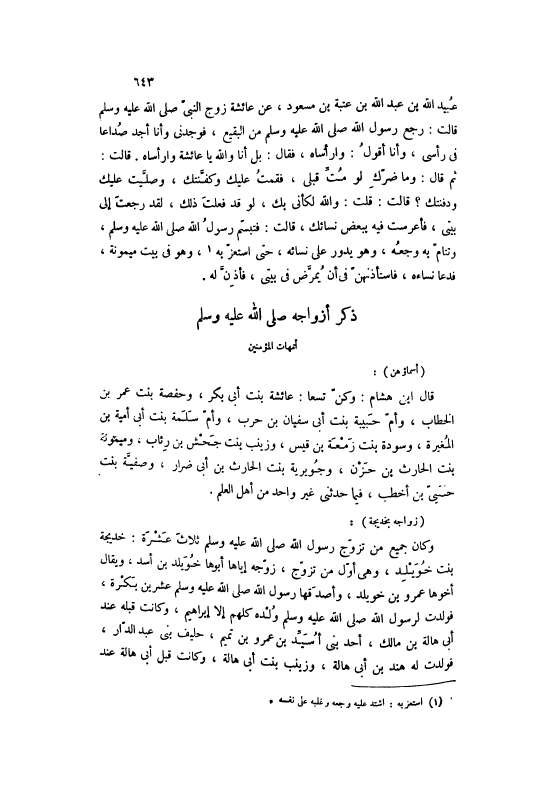 ٦٤٣
عُبيد الله بن عبد الله بن عتبة بن مسعود ، عن عائشة زوج النبىّ صلى الله عليه وسلم
قالت : رجع رسول الله صلى الله عليه وسلم من البقيع ، فوجدنى وأنا أجد صُداعا
فى رأسى ، وأنا أقولُ : وارأساه ، فقال : بل أنا والله يا عائشة وارأساه . قالت :
ثم قال : وما ضرّكِ لو مُتِّ قبلى ، فقمتُ عليك وكفَّنتك ، وصلَّيت عليك
ودفنتك ؟ قالت : قلت : والله لكأنى بك ، لو قد فعلتَ ذلك ، لقد رجعتَ إلى
بيتى ، فأعرست فيه ببعض نسائك ، قالت : فتبسّم رسولُ الله صلى الله عليه وسلم ،
وتتامّ به وجعُه ، وهو يدور على نسائه ، حتى استعزّ به ١ ، وهو فى بيت ميمونة ،
فدعا نساءه ، فاستأذنهنّ فى أن يُمرَّض فى بيتى ، فأذِنَّ له .
ذكر أزواجه صلى الله عليه وسلم
أمهات المؤمنين
( أسماؤهن ) :
قال ابن هشام : وكنّ تسعا : عائشة بنت أبى بكر ، وحفصة بنت عمر بن
الخطاب ، وأمّ حَبيبة بنت أبى سفيان بن حرب ، وأمّ سَلَمة بنت أبى أمية بن
المُغيرة ، وسودة بنت زَمْعَة بن قيس ، وزينب بنت جَحْش بن رِئاب ، وميمونة
بنت الحارث بن حَزْن ، وجُويرية بنت الحارث بن أبى ضرار ، وصفيَّة بنت
حُيَيّ بن أخطب ، فيما حدثنى غير واحد من أهل العلم .
( زواجه بخديجة ) :
وكان جميع من تزوّج رسول الله صلى الله عليه وسلم ثلاثَ عَشْرَة : خديجة
بنت خُوَيْلِد ، وهى أوّل من تزوّج ، زوّجه إياها أبوها خُوَيلد بن أسد ، ويقال
أخوها عمرو بن خويلد ، وأصدقها رسول الله صلى الله عليه وسلم عشرين بَكْرة ،
فولدت لرسول الله صلى الله عليه وسلم وُلْده كلهم إلا إبراهيم ، وكانت قبله عند
أبى هالة بن مالك ، أحد بنى أُسَيِّد بن عمرو بن تميم ، حليف بنى عبد الدّار ،
فولدت له هند بن أبى هالة ، وزينب بنت أبى هالة ، وكانت قبل أبى هالة عند
(١) استعز به : اشتد عليه وجعه وغلبه على نفسه .